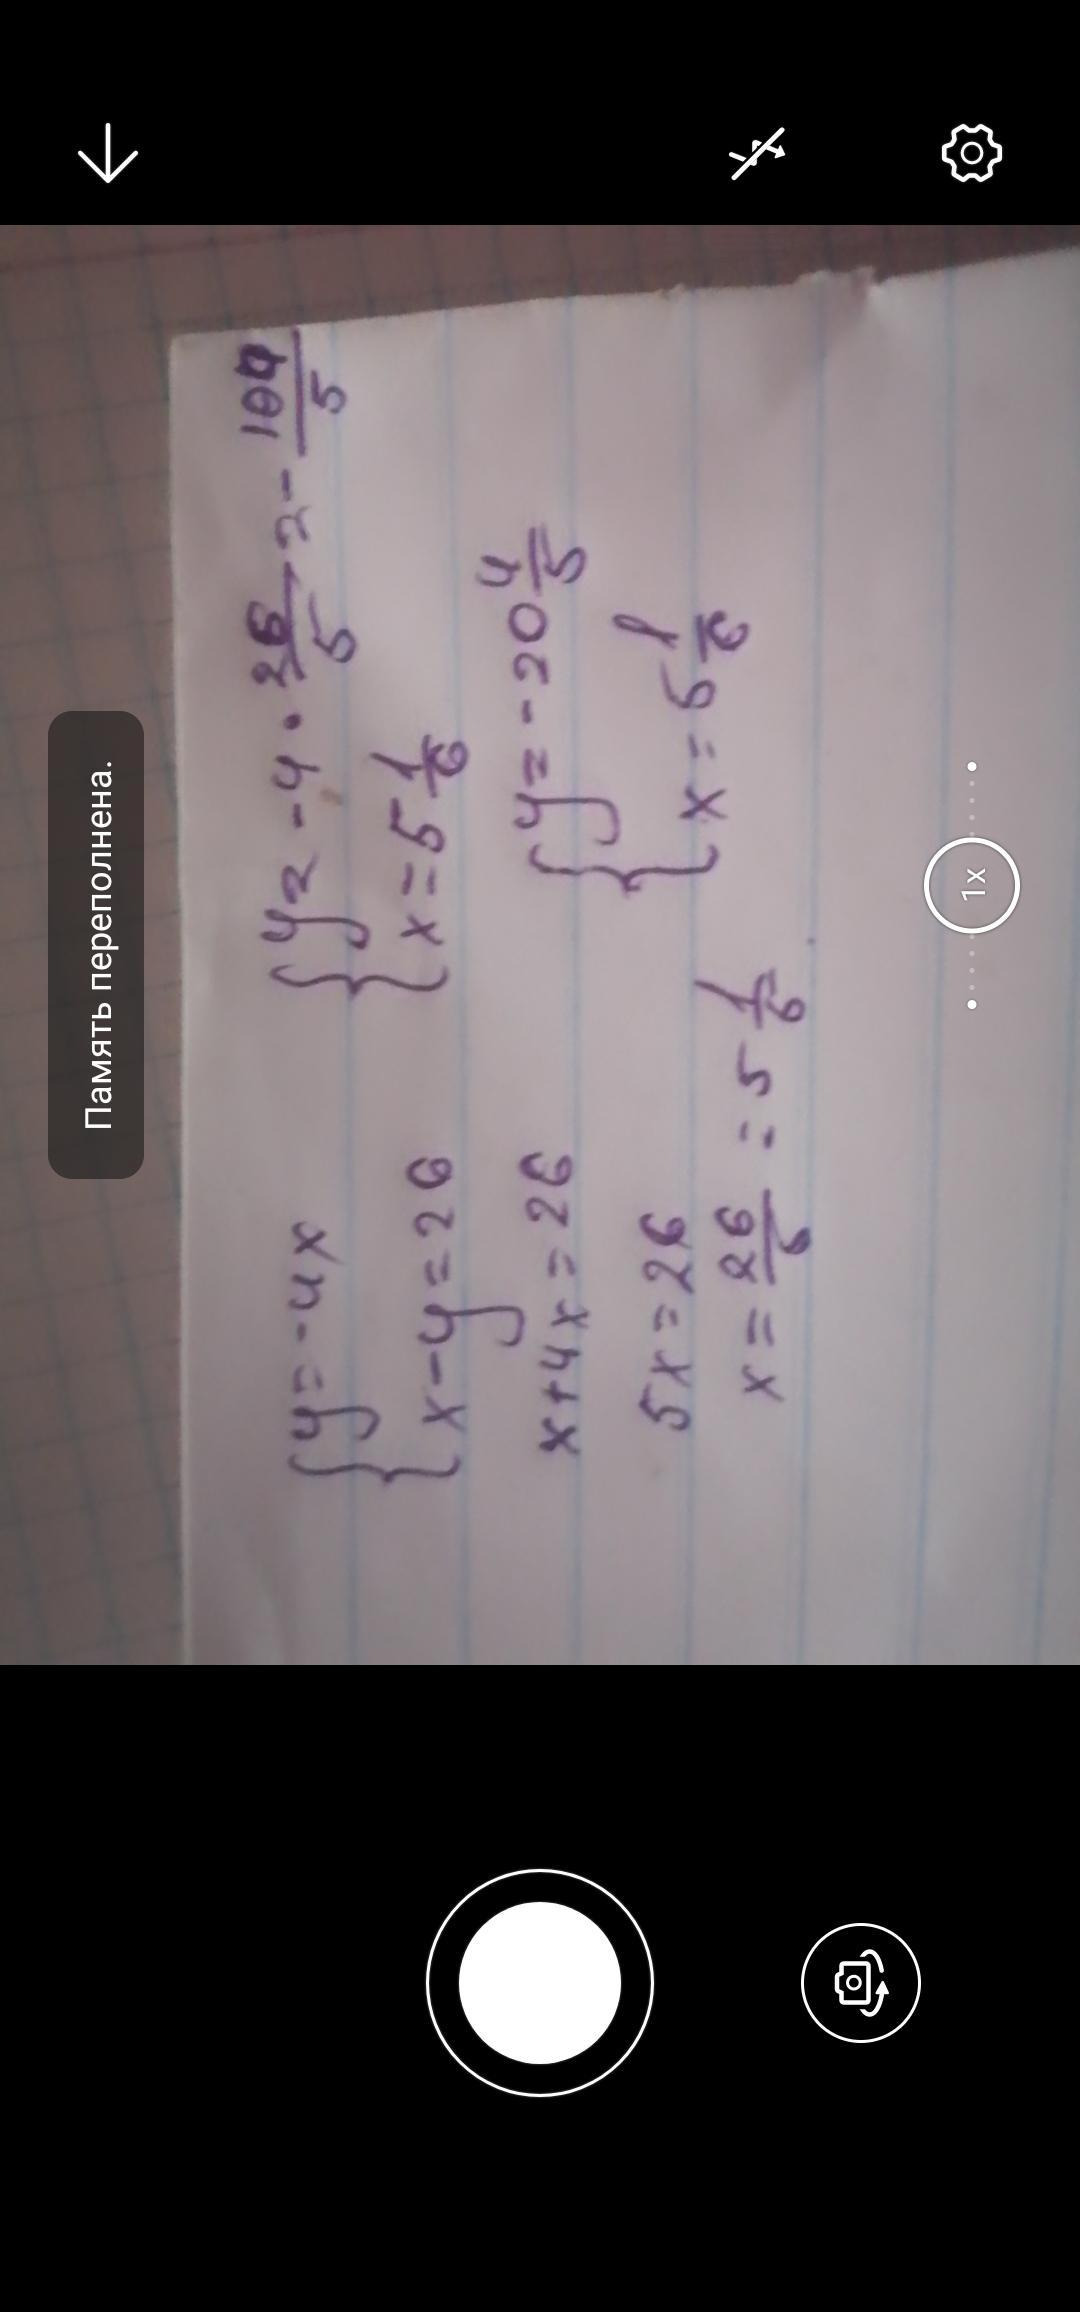 Память переполнена.
1x
{ y = -4x
x - y = 26
x + 4x = 26
5x = 26
x = 26/5 = 5 1/6
{ y = -4 · 26/5 = - 104/5
x = 5 1/6
{ y = -20 4/5
x = 5 1/6